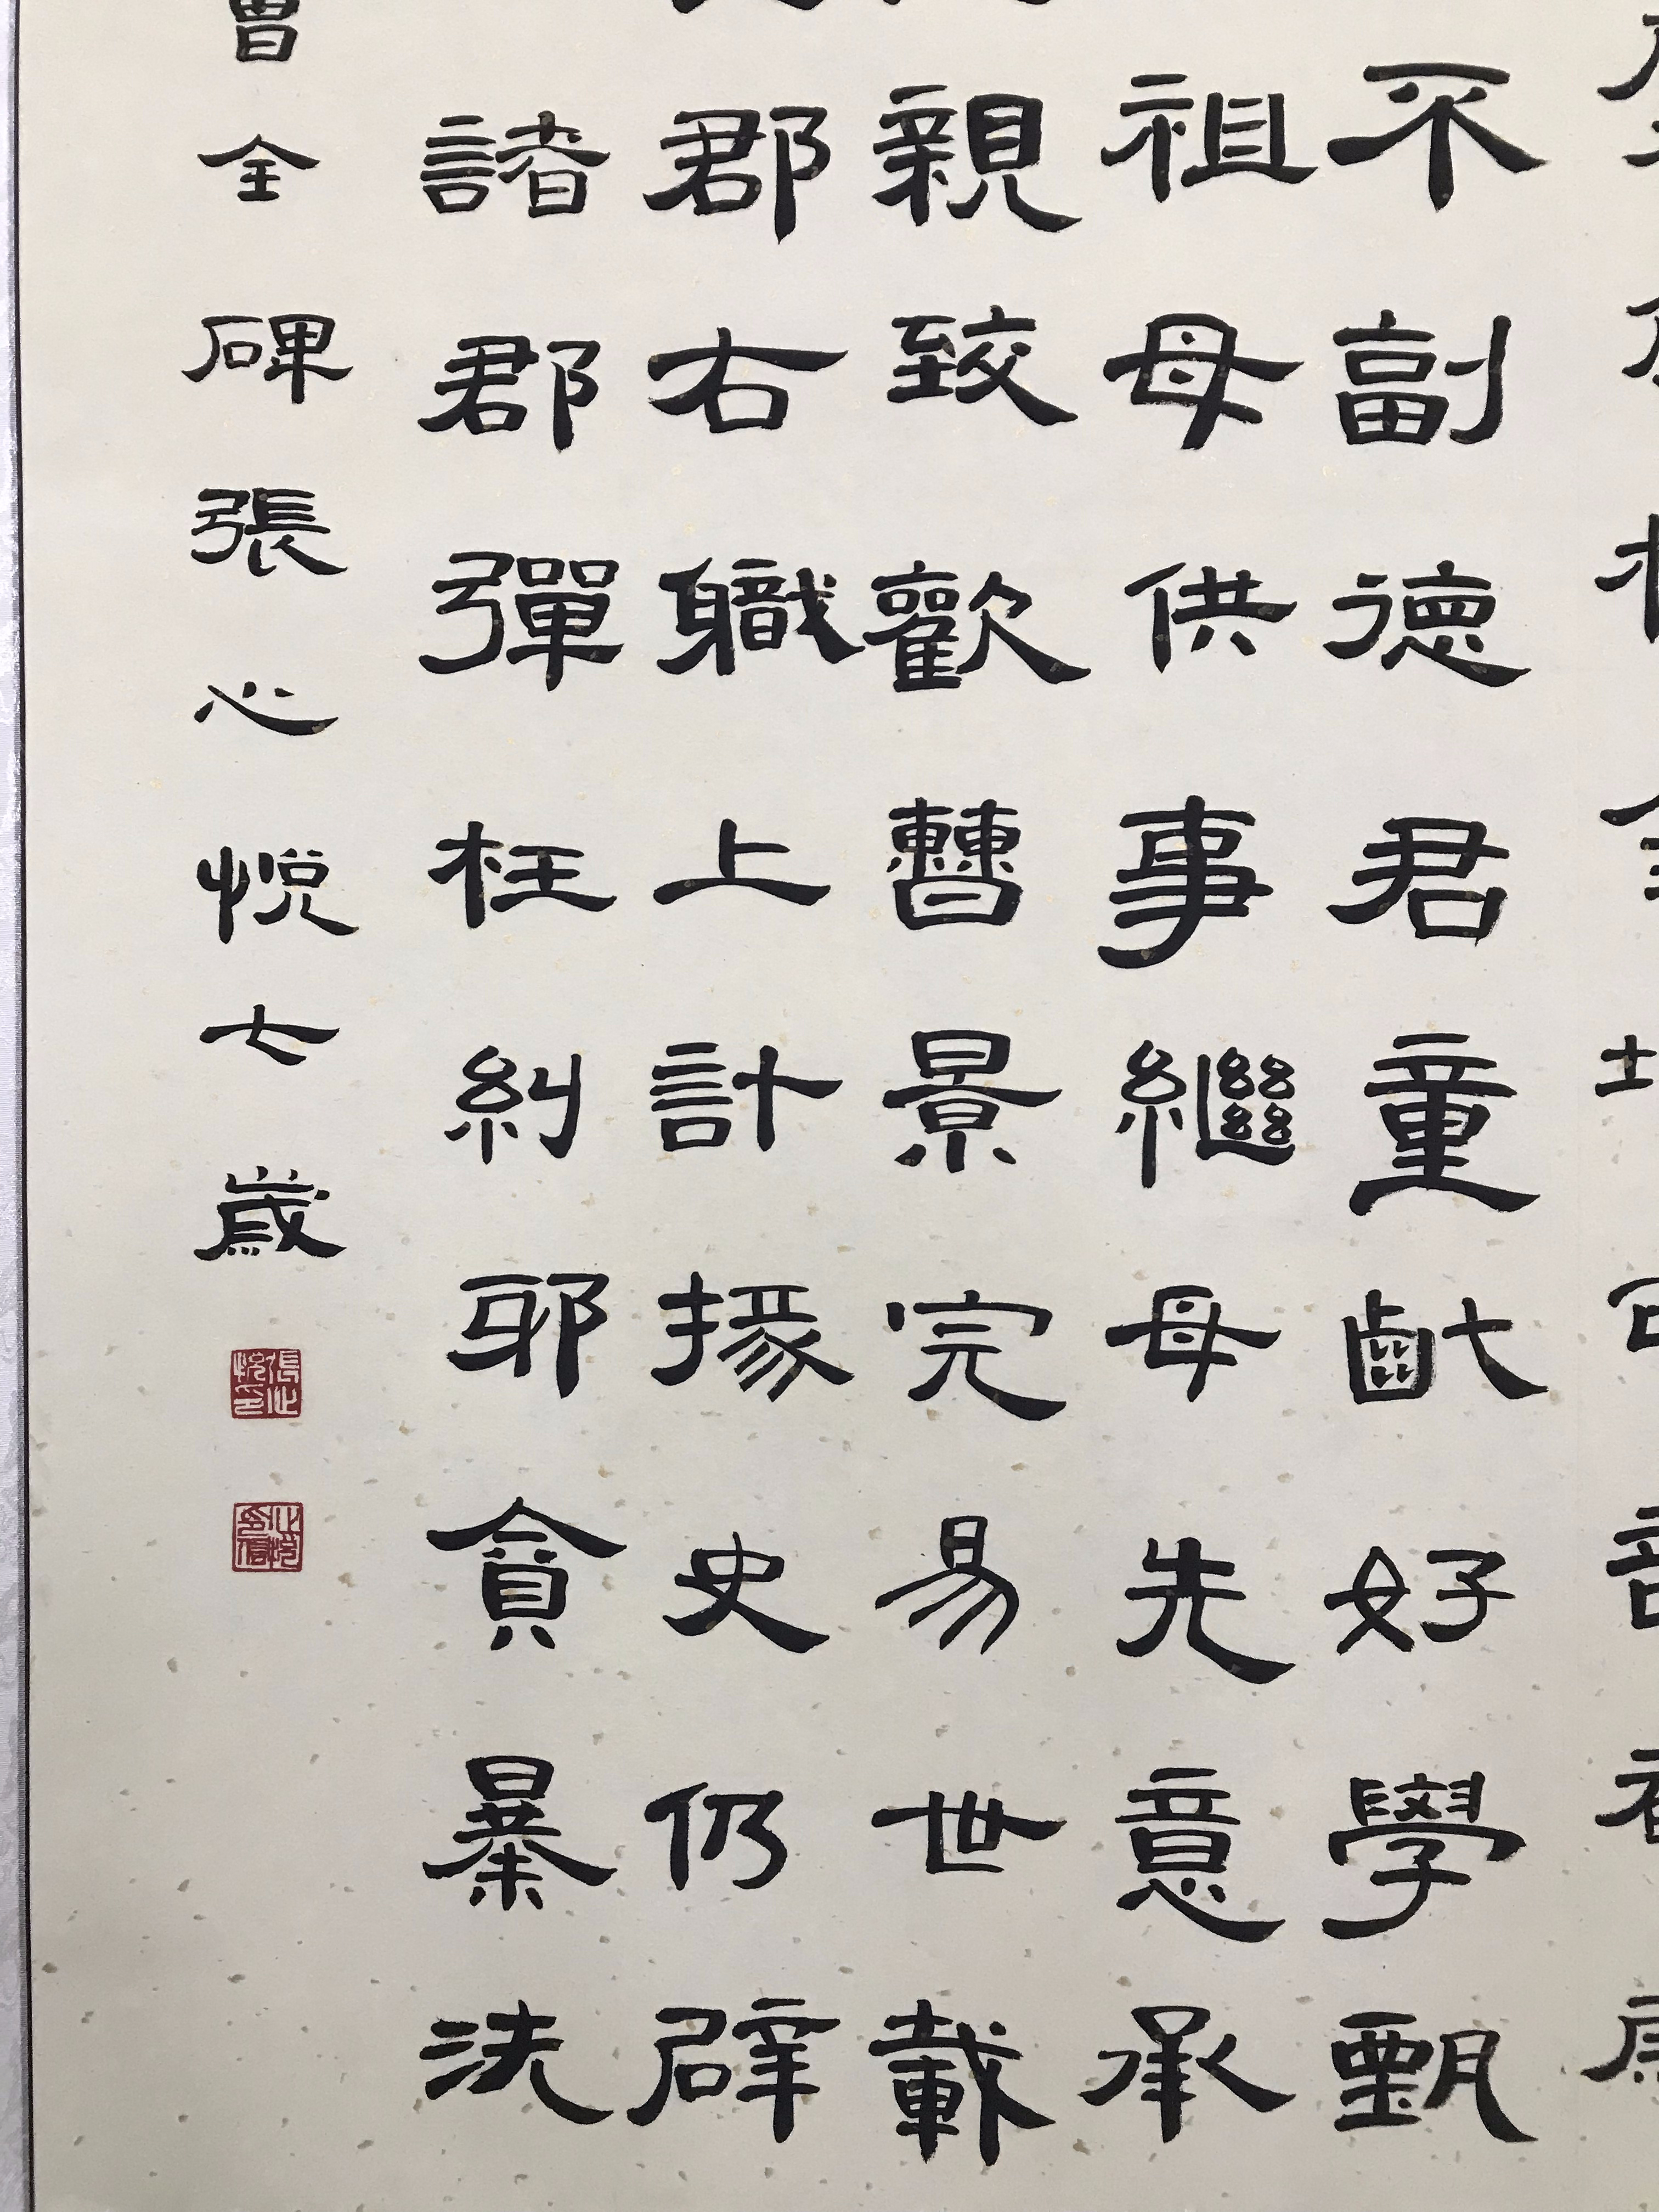 不副德君童齔好學甄
祖母供事繼母先意承
親致歡曹景完易世載
郡右職上計掾史仍辟
諸郡彈枉糾邪貪暴洗
曹全碑張心悅七歲
張心悅印
心悅